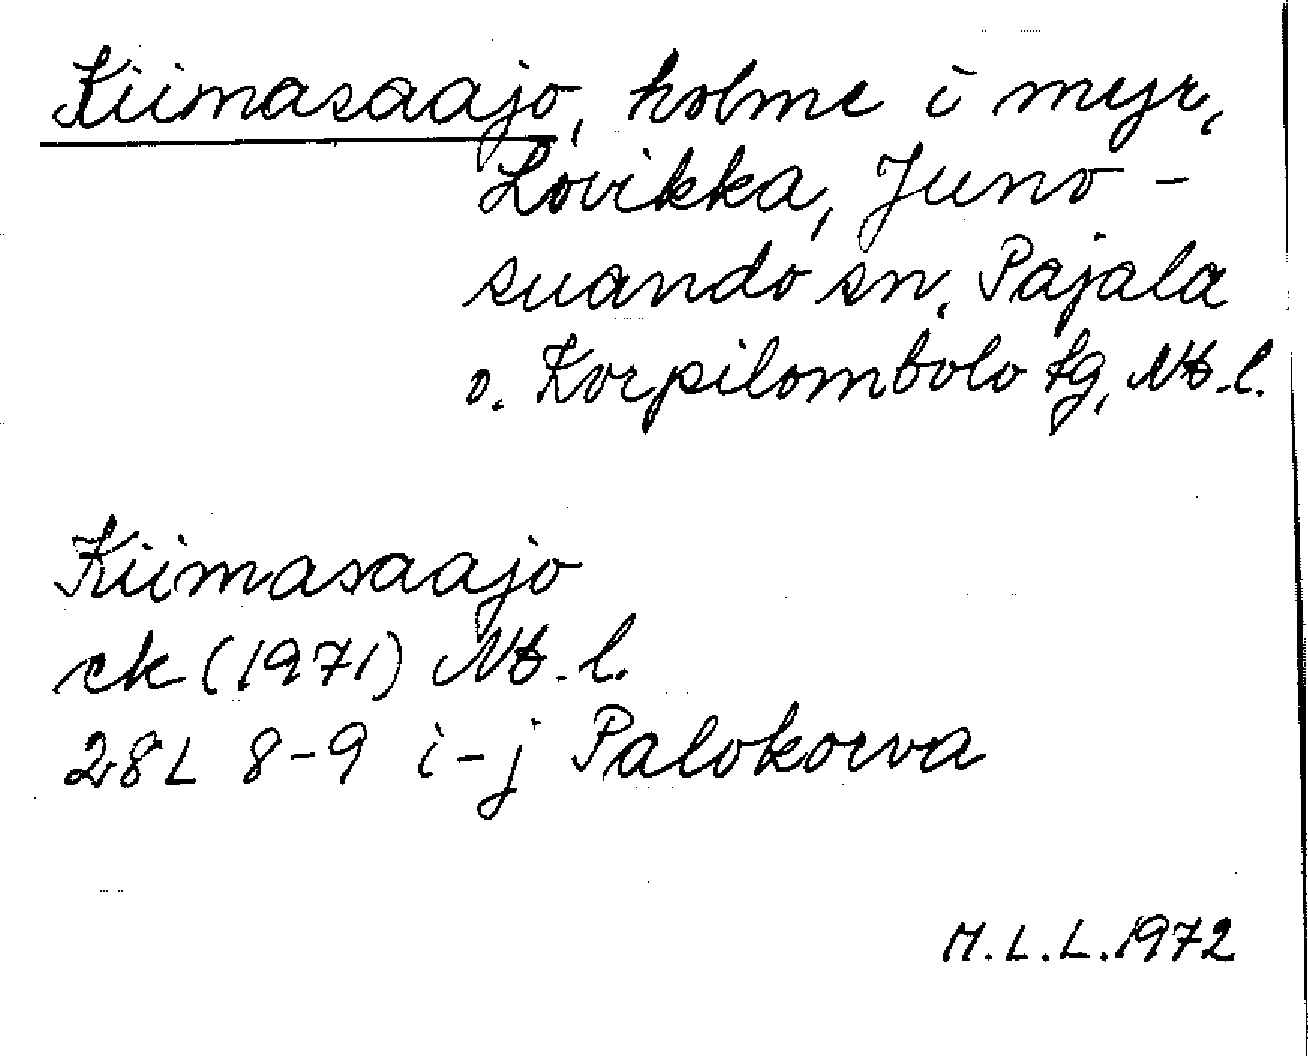 Kiimasaajo, holme i myr,
Lovikka, Juno-
suando sn, Pajala
o. Korpilombolo tg, Nb.l.
Kiimasaajo
ek (1971) Nb.l.
28L 8-9 i-j Palokorva
M.L.L. 1972